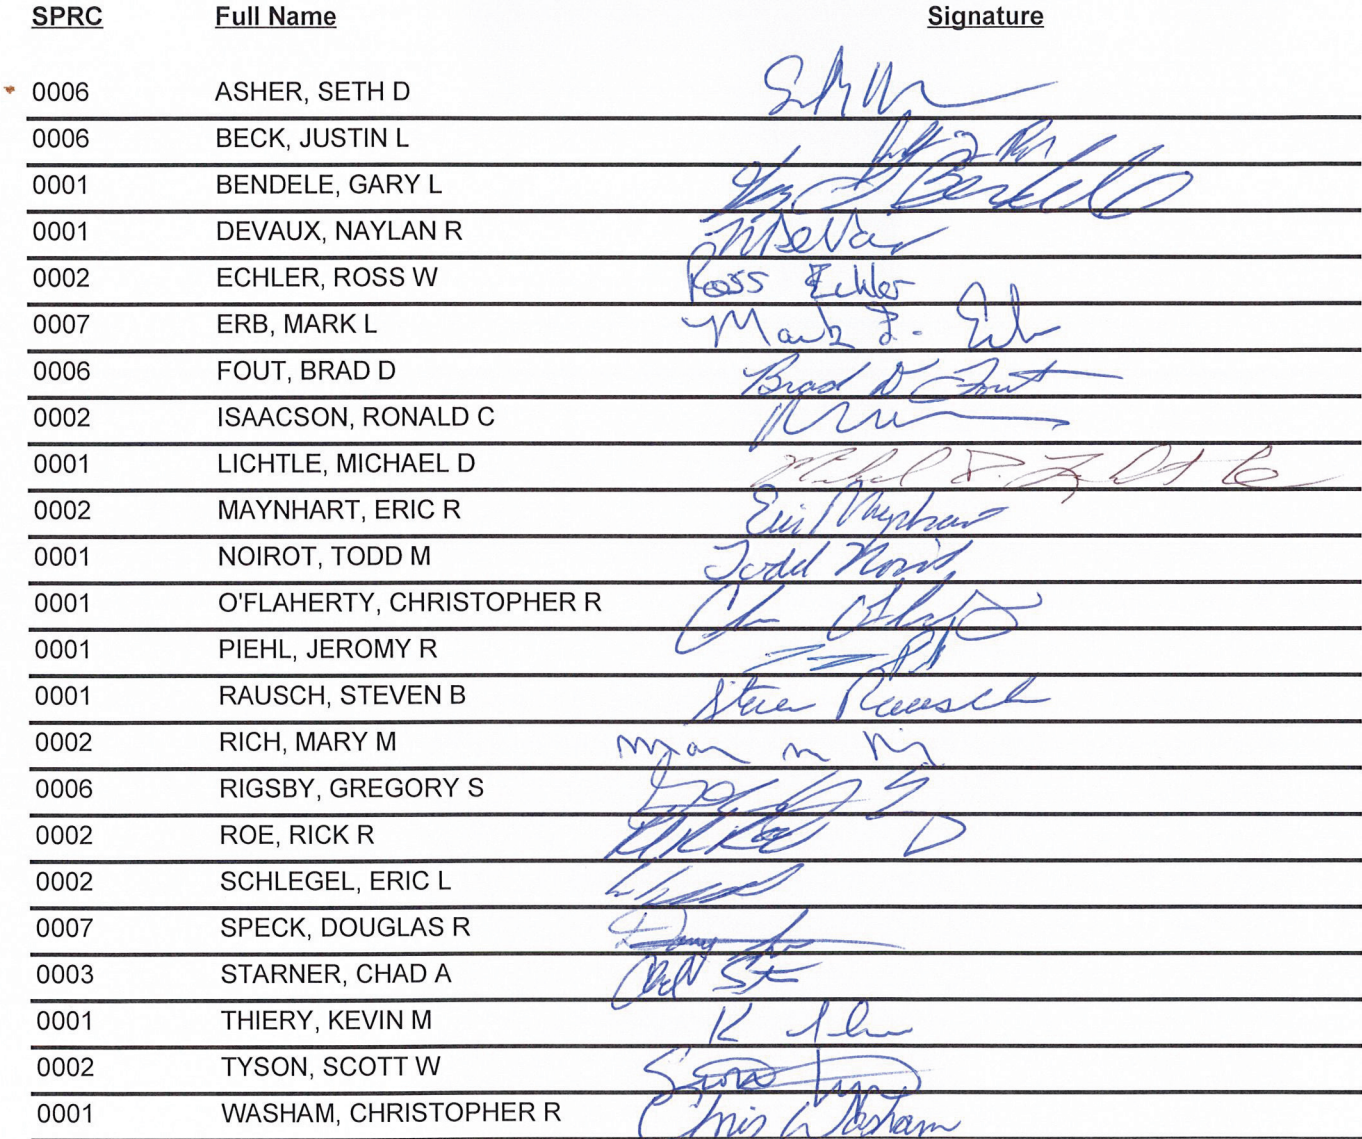 SPRC Full Name Signature
0006 ASHER, SETH D
0006 BECK, JUSTIN L
0001 BENDELE, GARY L Gary L Bendele
0001 DEVAUX, NAYLAN R
0002 ECHLER, ROSS W Ross Echler
0007 ERB, MARK L Mark L. Erb
0006 FOUT, BRAD D Brad D Fout
0002 ISAACSON, RONALD C
0001 LICHTLE, MICHAEL D
0002 MAYNHART, ERIC R Eric Maynhart
0001 NOIROT, TODD M Todd Noirot
0001 O'FLAHERTY, CHRISTOPHER R
0001 PIEHL, JEROMY R
0001 RAUSCH, STEVEN B Steven Rausch
0002 RICH, MARY M
0006 RIGSBY, GREGORY S
0002 ROE, RICK R
0002 SCHLEGEL, ERIC L
0007 SPECK, DOUGLAS R
0003 STARNER, CHAD A
0001 THIERY, KEVIN M
0002 TYSON, SCOTT W
0001 WASHAM, CHRISTOPHER R Chris Washam